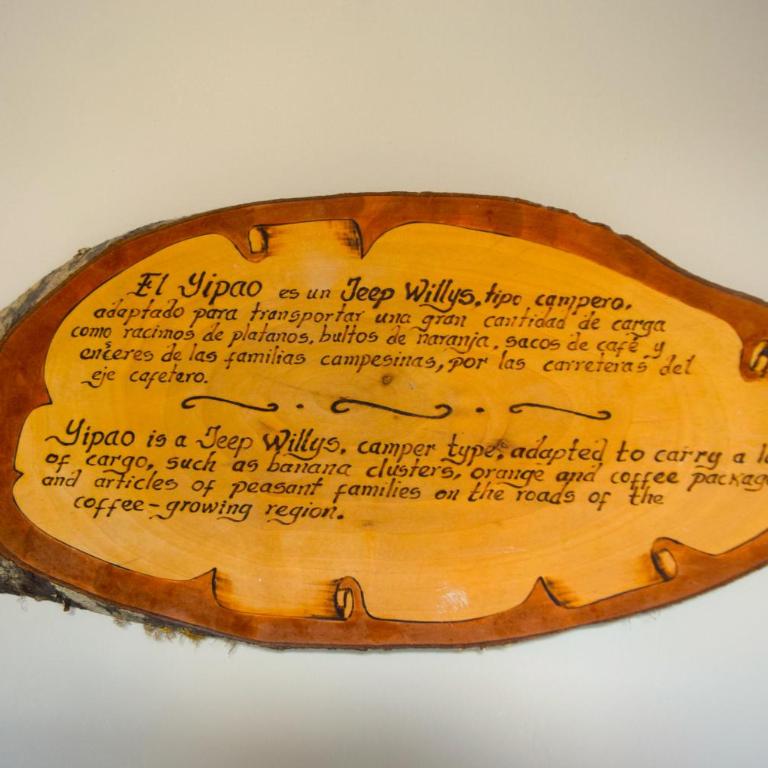 El Yipao es un Jeep Willys, tipo campero,
adaptado para transportar una gran cantidad de carga
como racimos de platanos, bultos de naranja, sacos de café y
enceres de las familias campesinas, por las carreteras del
eje cafetero.
Yipao is a Jeep Willys, camper type, adapted to carry a
of cargo, such as banana clusters, orange and coffee
and articles of peasant families on the roads of the
coffee-growing region.